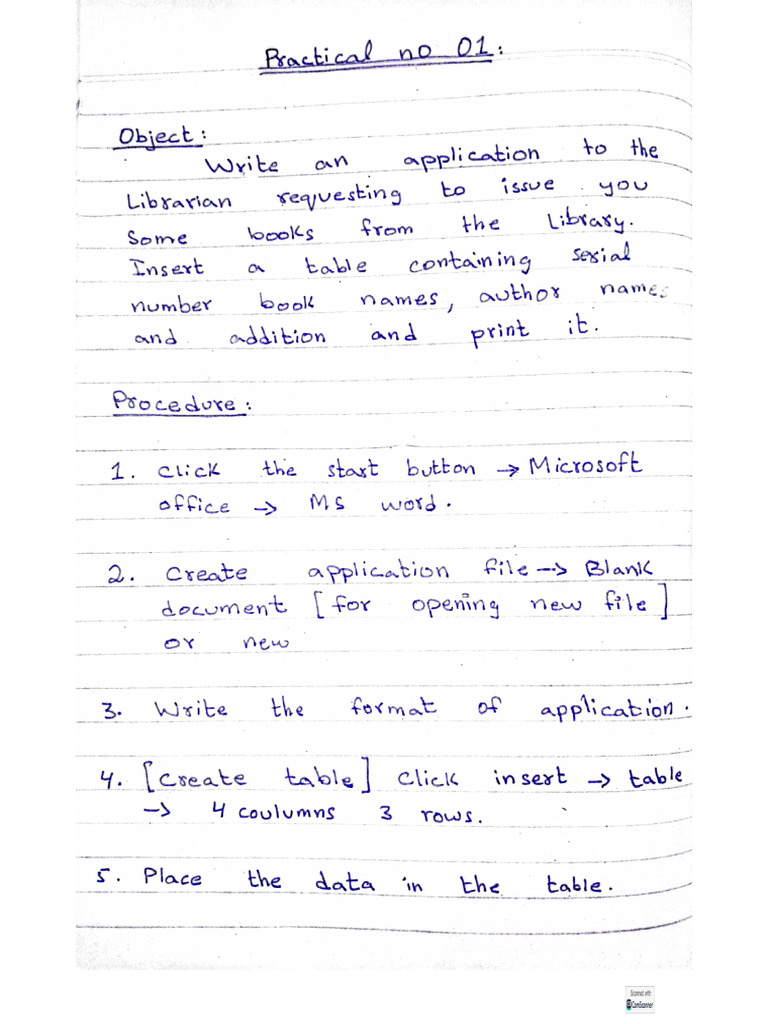 Practical no 01:
Object:
Write an application to the
Librarian requesting to issue you
Some books from the Library.
Insert a table containing serial
number book names, author names
and addition and print it.
Procedure:
1. Click the start button → Microsoft
office → MS word.
2. Create application file → Blank
document [for opening new file]
or new
3. Write the format of application.
4. [Create table] Click insert → table
→ 4 coulumns 3 rows.
5. Place the data in the table.
Scanned with
CamScanner